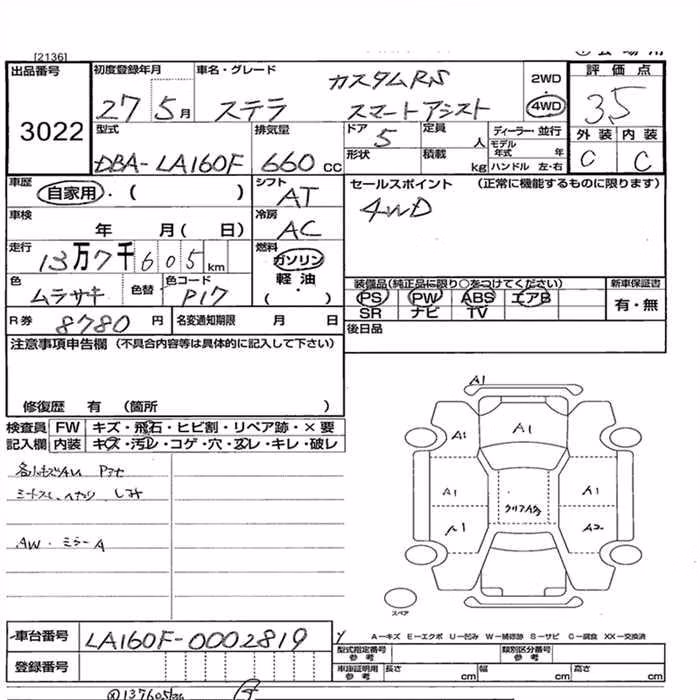 [2136]
出品番号
3022
初度登録年月
27 5月
車名・グレード
カスタムRS
ステラ スマートアシスト
2WD
4WD
評価点
3.5
外装 内装
C C
型式
DBA-LA160F
排気量
660 cc
ドア
5
定員
人
形状
積載
kg
ディーラー・並行
モデル年式 年
ハンドル 左・右
車歴
自家用・( )
シフト
AT
セールスポイント (正常に機能するものに限ります)
4WD
車検
年 月( 日)
冷房
AC
走行
13万7千605km
燃料
ガソリン
軽油
( ・ )
色
ムラサキ
色替
色コード
P17
装備品(純正品に限り○をつけてください)
PS PW ABS エアB
SR ナビ TV
新車保証書
有・無
R券
8780円
名変通知期限 月 日
後日品
注意事項申告欄 (不具合内容等は具体的に記入して下さい)
修復歴 有 (箇所 )
検査員 FW キズ・飛石・ヒビ割・リペア跡・×要
記入欄 内装 キズ・汚レ・コゲ・穴・スレ・キレ・破レ
AW・ミラーA
A1
A1 A1
A1 A1
A1 A2
スペア
車台番号
LA160F-0002819
登録番号
A―キズ E―エクボ U―凹み W―補修跡 S―サビ C―腐食 XX―交換済
型式指定番号
参考
類別区分番号
参考
車庫証明用
参考
長さ cm 幅 cm 高さ cm